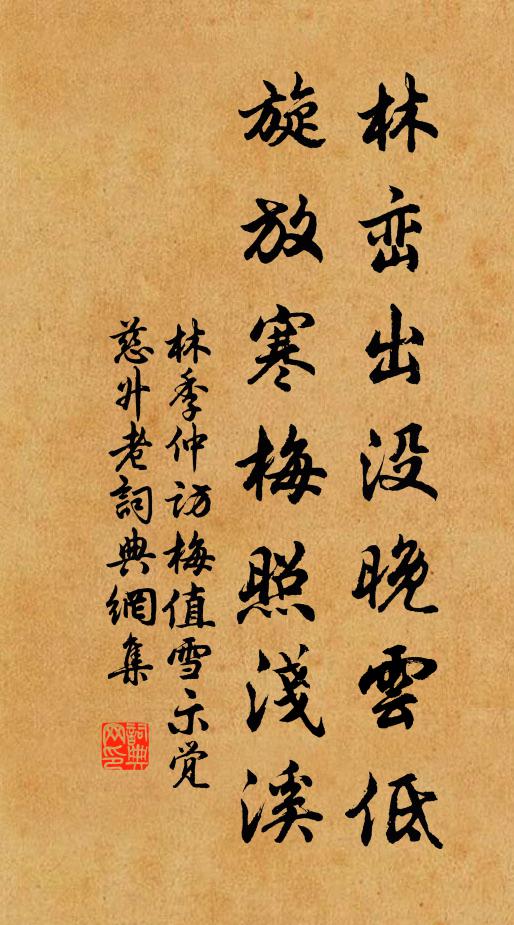 林峦出没晚雲低
旋放寒梅照浅溪
林季仲访梅值雪示觉
慈升老詞典網集
詞典
网印